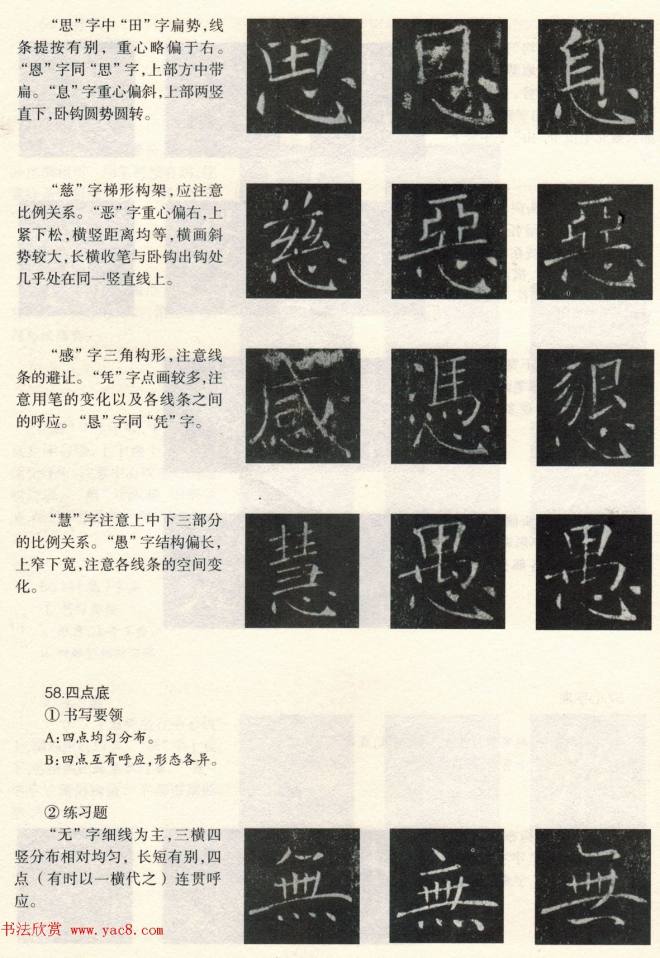 “思”字中“田”字扁势,线
条提按有别，重心略偏于右。
“恩”字同“思”字,上部方中带
扁。“息”字重心偏斜,上部两竖
直下,卧钩圆势圆转。
思 恩 息
“慈”字梯形构架,应注意
比例关系。“恶”字重心偏右,上
紧下松,横竖距离均等,横画斜
势较大,长横收笔与卧钩出钩处
几乎处在同一竖直线上。
慈 惡 惡
“感”字三角构形,注意线
条的避让。“凭”字点画较多,注
意用笔的变化以及各线条之间
的呼应。“恳”字同“凭”字。
感 憑 懇
“慧”字注意上中下三部分
的比例关系。“愚”字结构偏长,
上窄下宽,注意各线条的空间变
化。
慧 愚 愚
58.四点底
①书写要领
A:四点均匀分布。
B:四点互有呼应,形态各异。
②练习题
“无”字细线为主,三横四
竖分布相对均匀，长短有别,四
点（有时以一横代之）连贯呼
应。
無 無 無
书法欣赏 www.yac8.com